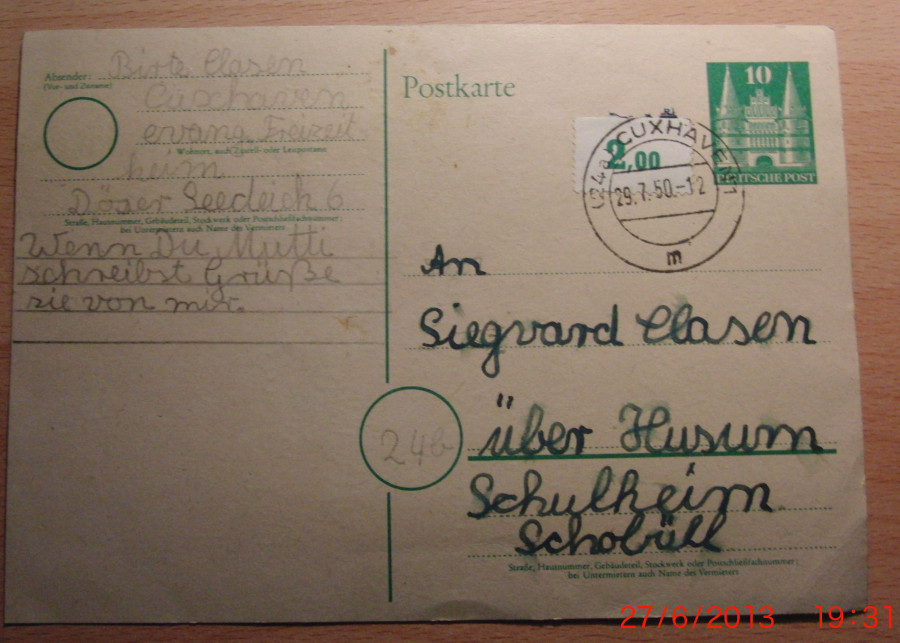 Absender: Birte Clasen
(Vor- und Zuname)
Cuxhaven
evang. Freizeit-
Wohnort, auch Zustell- oder Leitpostamt
heim
Döser Seedeich 6
Straße, Hausnummer, Gebäudeteil, Stockwerk oder Postschließfachnummer;
bei Untermietern auch Name des Vermieters
Wenn Du Mutti
schreibst Grüße
sie von mir.
Postkarte
10
DEUTSCHE POST
2,00
(24a) CUXHAVEN 1
29.7.50.-12
m
An
Siegvard Clasen
24b
über Husum
Schulheim
Schobüll
Straße, Hausnummer, Gebäudeteil, Stockwerk oder Postschließfachnummer;
bei Untermietern auch Name des Vermieters
27/6/2013 19:31